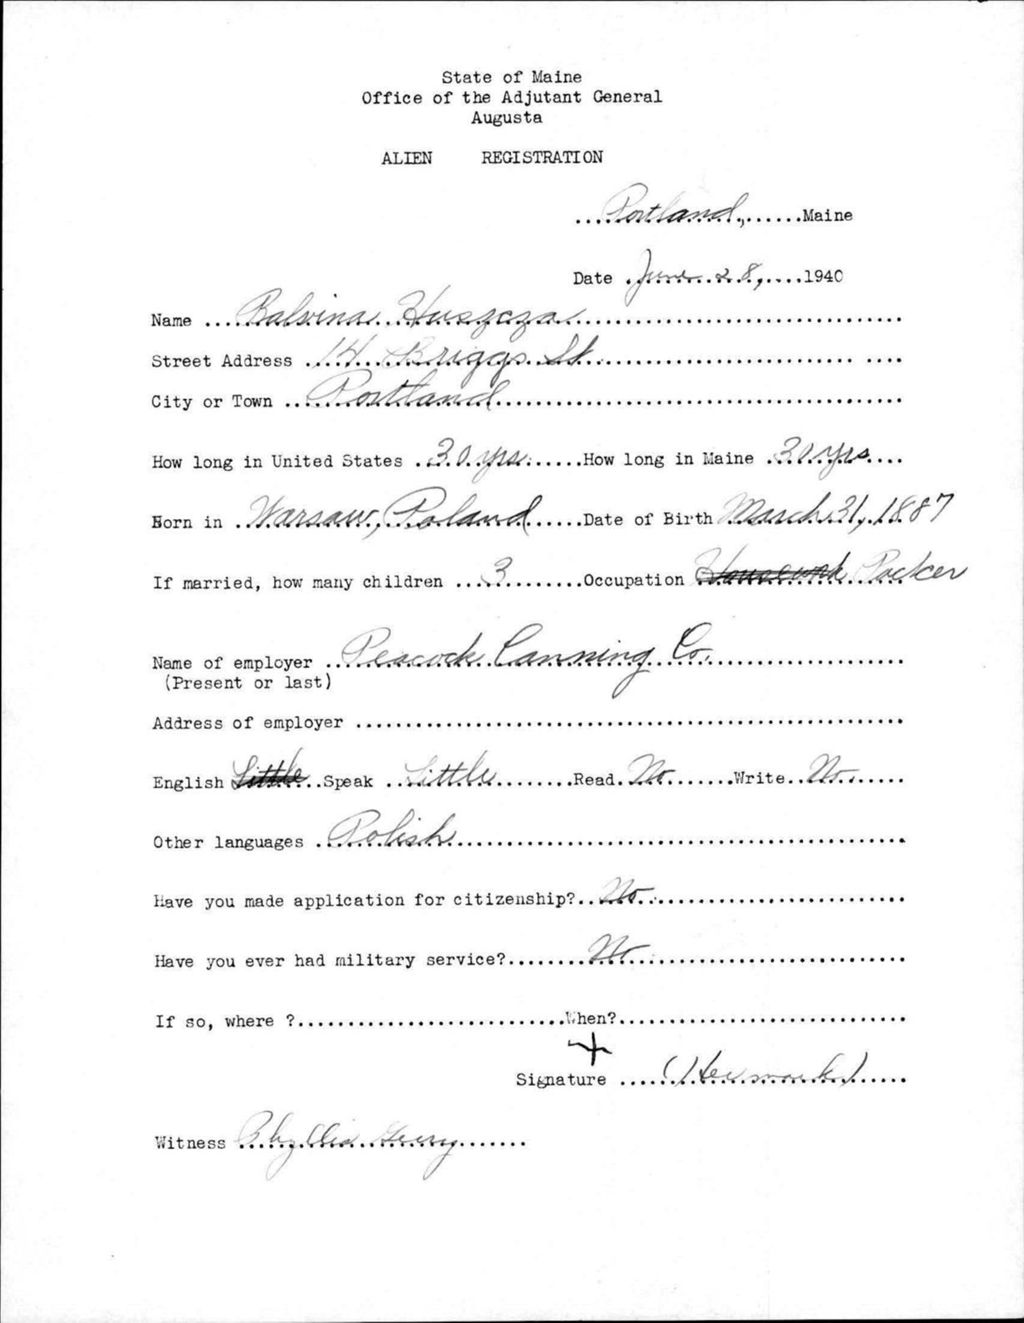 State of Maine
Office of the Adjutant General
Augusta
ALIEN REGISTRATION
Portland, Maine
Date June 28, 1940
Name Balvina Huszcza
Street Address 14 Briggs St.
City or Town Portland
How long in United States 30 yrs. How long in Maine 30 yrs.
Born in Warsaw, Poland Date of Birth March 31, 1887
If married, how many children 3 Occupation Housework Packer
Name of employer Peacock Canning Co.
(Present or last)
Address of employer
English Little Speak Little Read No Write No
Other languages Polish
Have you made application for citizenship? No
Have you ever had military service? No
If so, where ? When?
+
Signature (Her mark)
Witness Phyllis